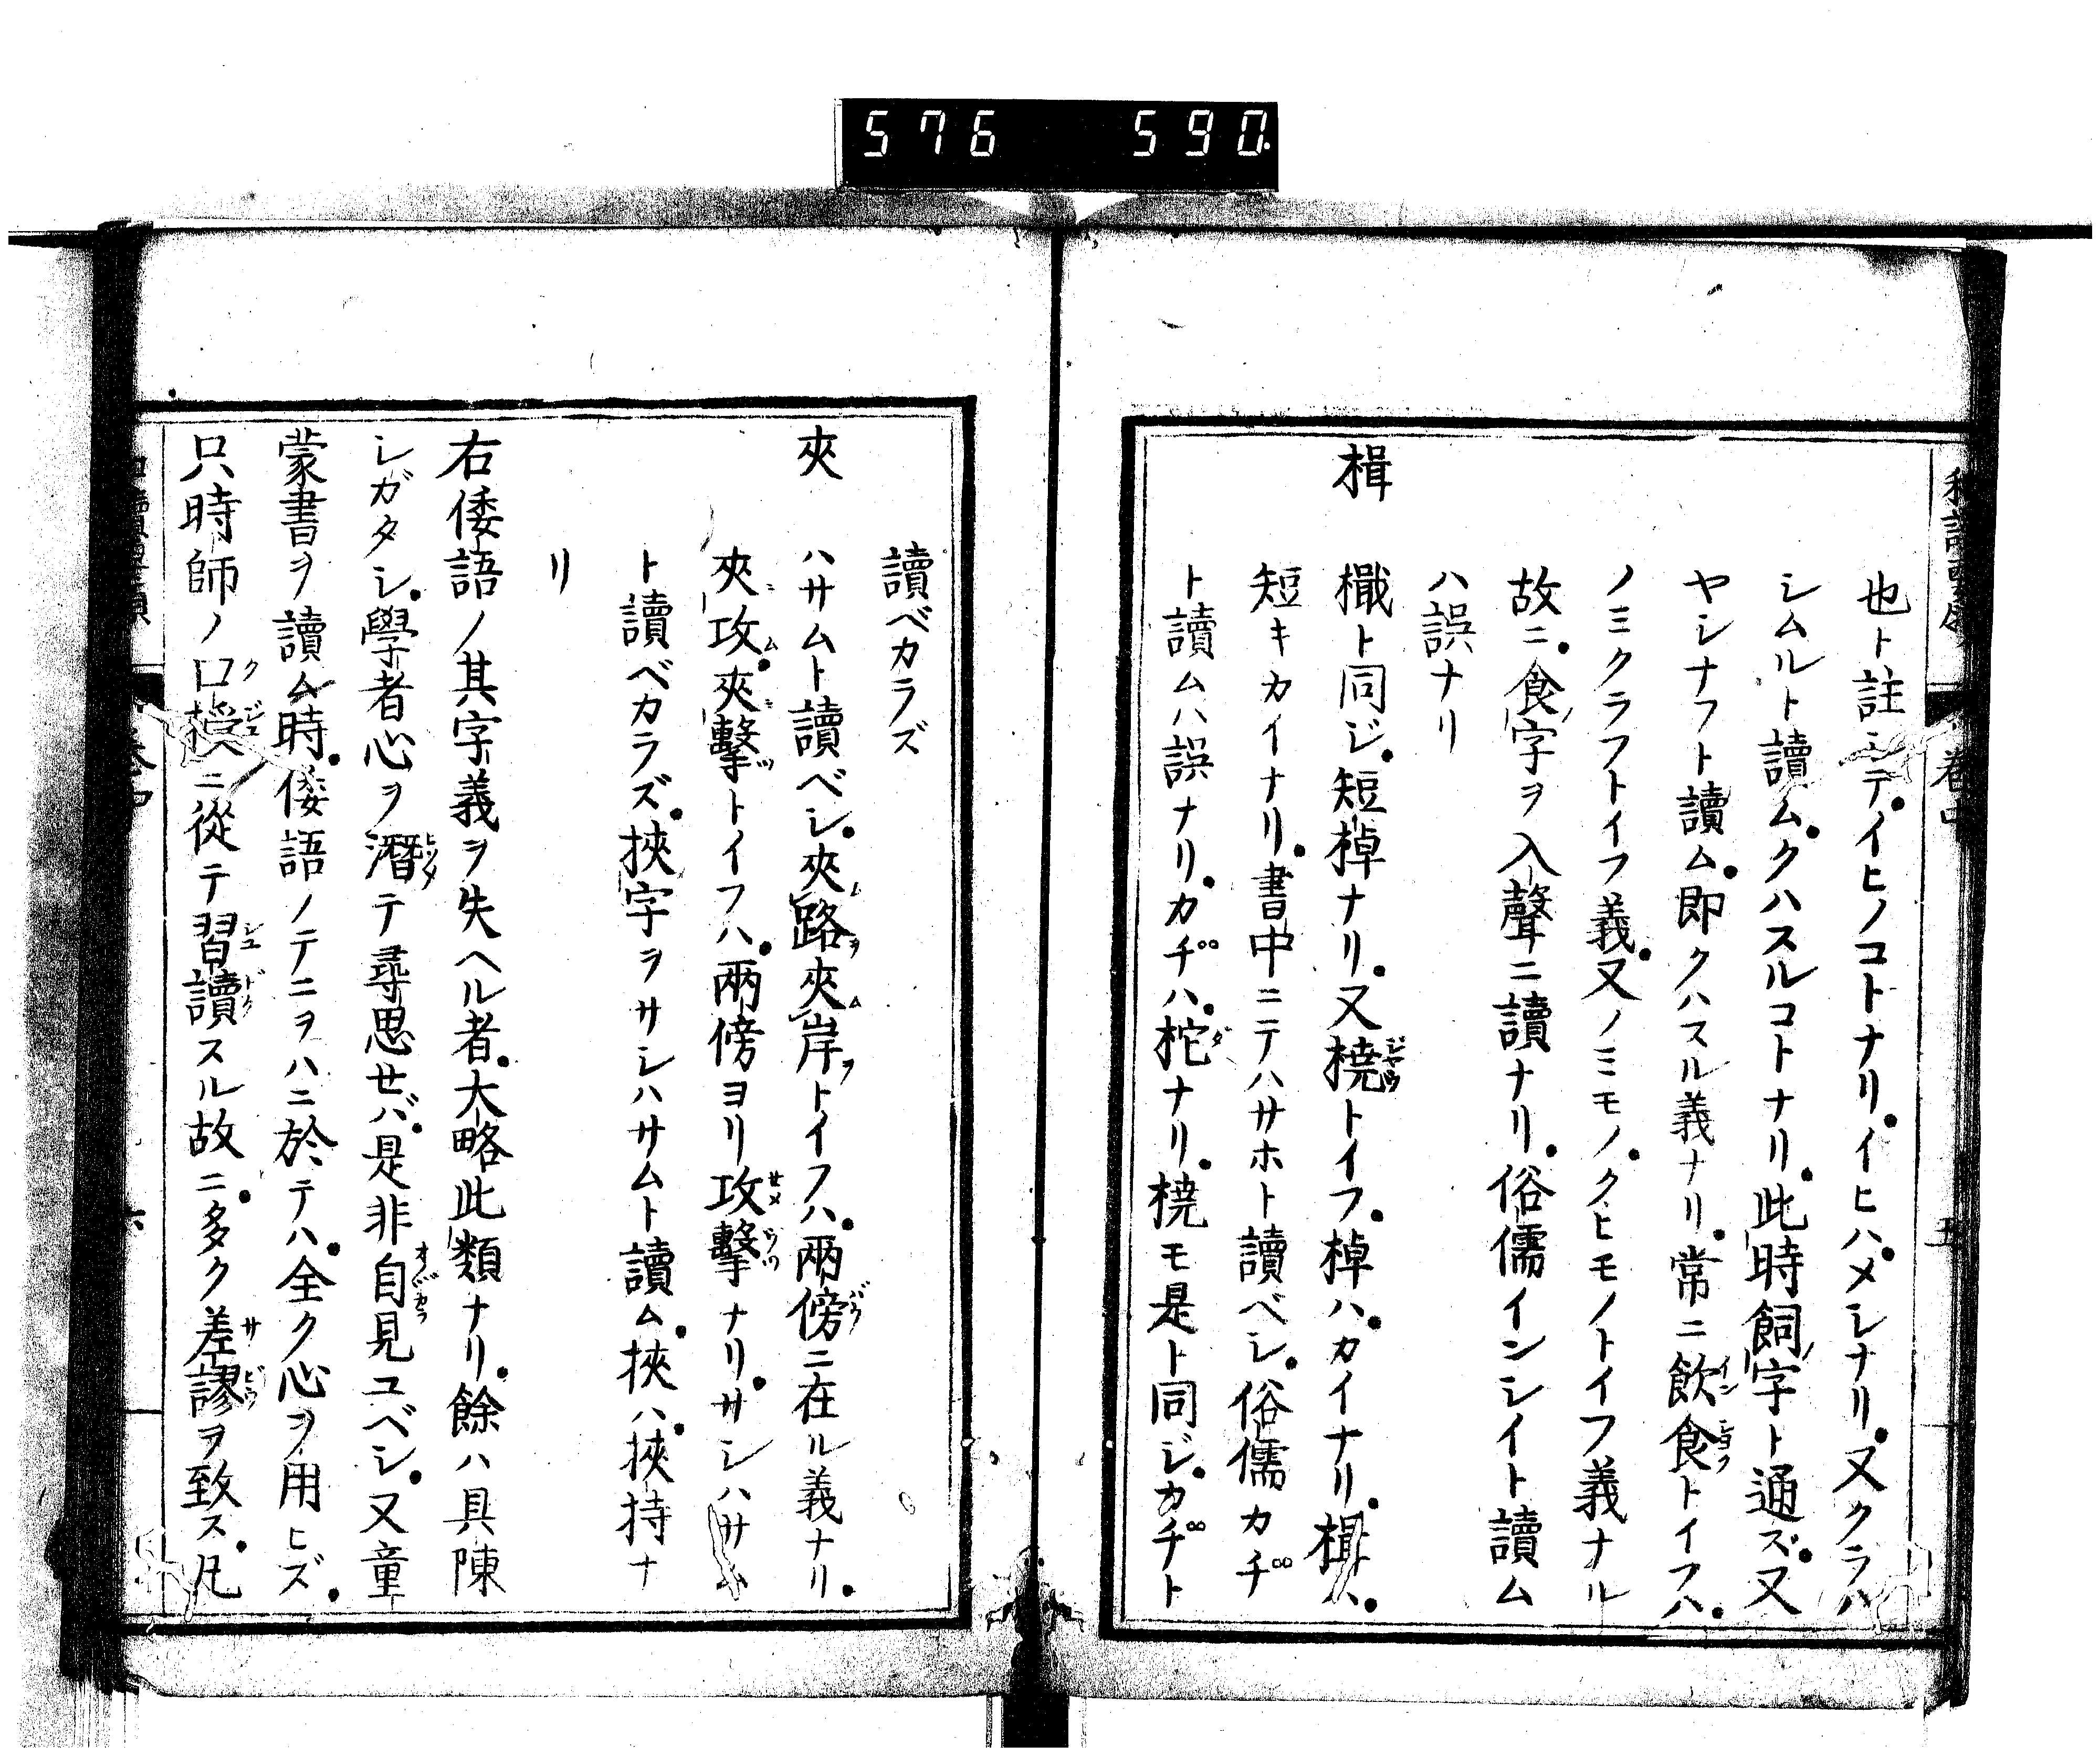 576 590
也ト註シテ。イヒノコトナリ。イヒハ。メシナリ。又クラハ
シムルト讀ム。クハスルコトナリ。此時飼字ト通ズ。又
ヤシナフト讀ム。即クハスル義ナリ。常ニ飲食トイフハ。
ノミクラフトイフ義。又ノミモノ。クヒモノトイフ義ナル
故ニ。食字ヲ入聲ニ讀ナリ。俗儒インシイト讀ム
ハ誤ナリ
楫 檝ト同ジ。短棹ナリ。又橈トイフ。棹ハ。カイナリ。楫ハ。
短キカイナリ。書中ニテハサホト讀ベシ。俗儒カヂ
ト讀ムハ誤ナリ。カヂハ。柁ナリ。橈モ是ト同ジ。カヂト
讀ベカラズ
夾 ハサムト讀ベシ。夾路夾岸トイフハ。兩傍ニ在ル義ナリ。
夾攻。夾擊トイフハ。兩傍ヨリ攻擊ナリ。サシハサム
ト讀ベカラズ。挾字ヲサシハサムト讀ム。挾ハ。挾持ナ
リ
右倭語ノ其字義ヲ失ヘル者。大略此類ナリ。餘ハ具陳
シガタシ。學者心ヲ潛テ尋思セバ。是非自見ユベシ。又童
蒙書ヲ讀ム時。倭語ノテニヲハニ於テハ。全ク心ヲ用ヒズ。
只時師ノ口授ニ從テ習讀スル故ニ。多ク差謬ヲ致ス。凡